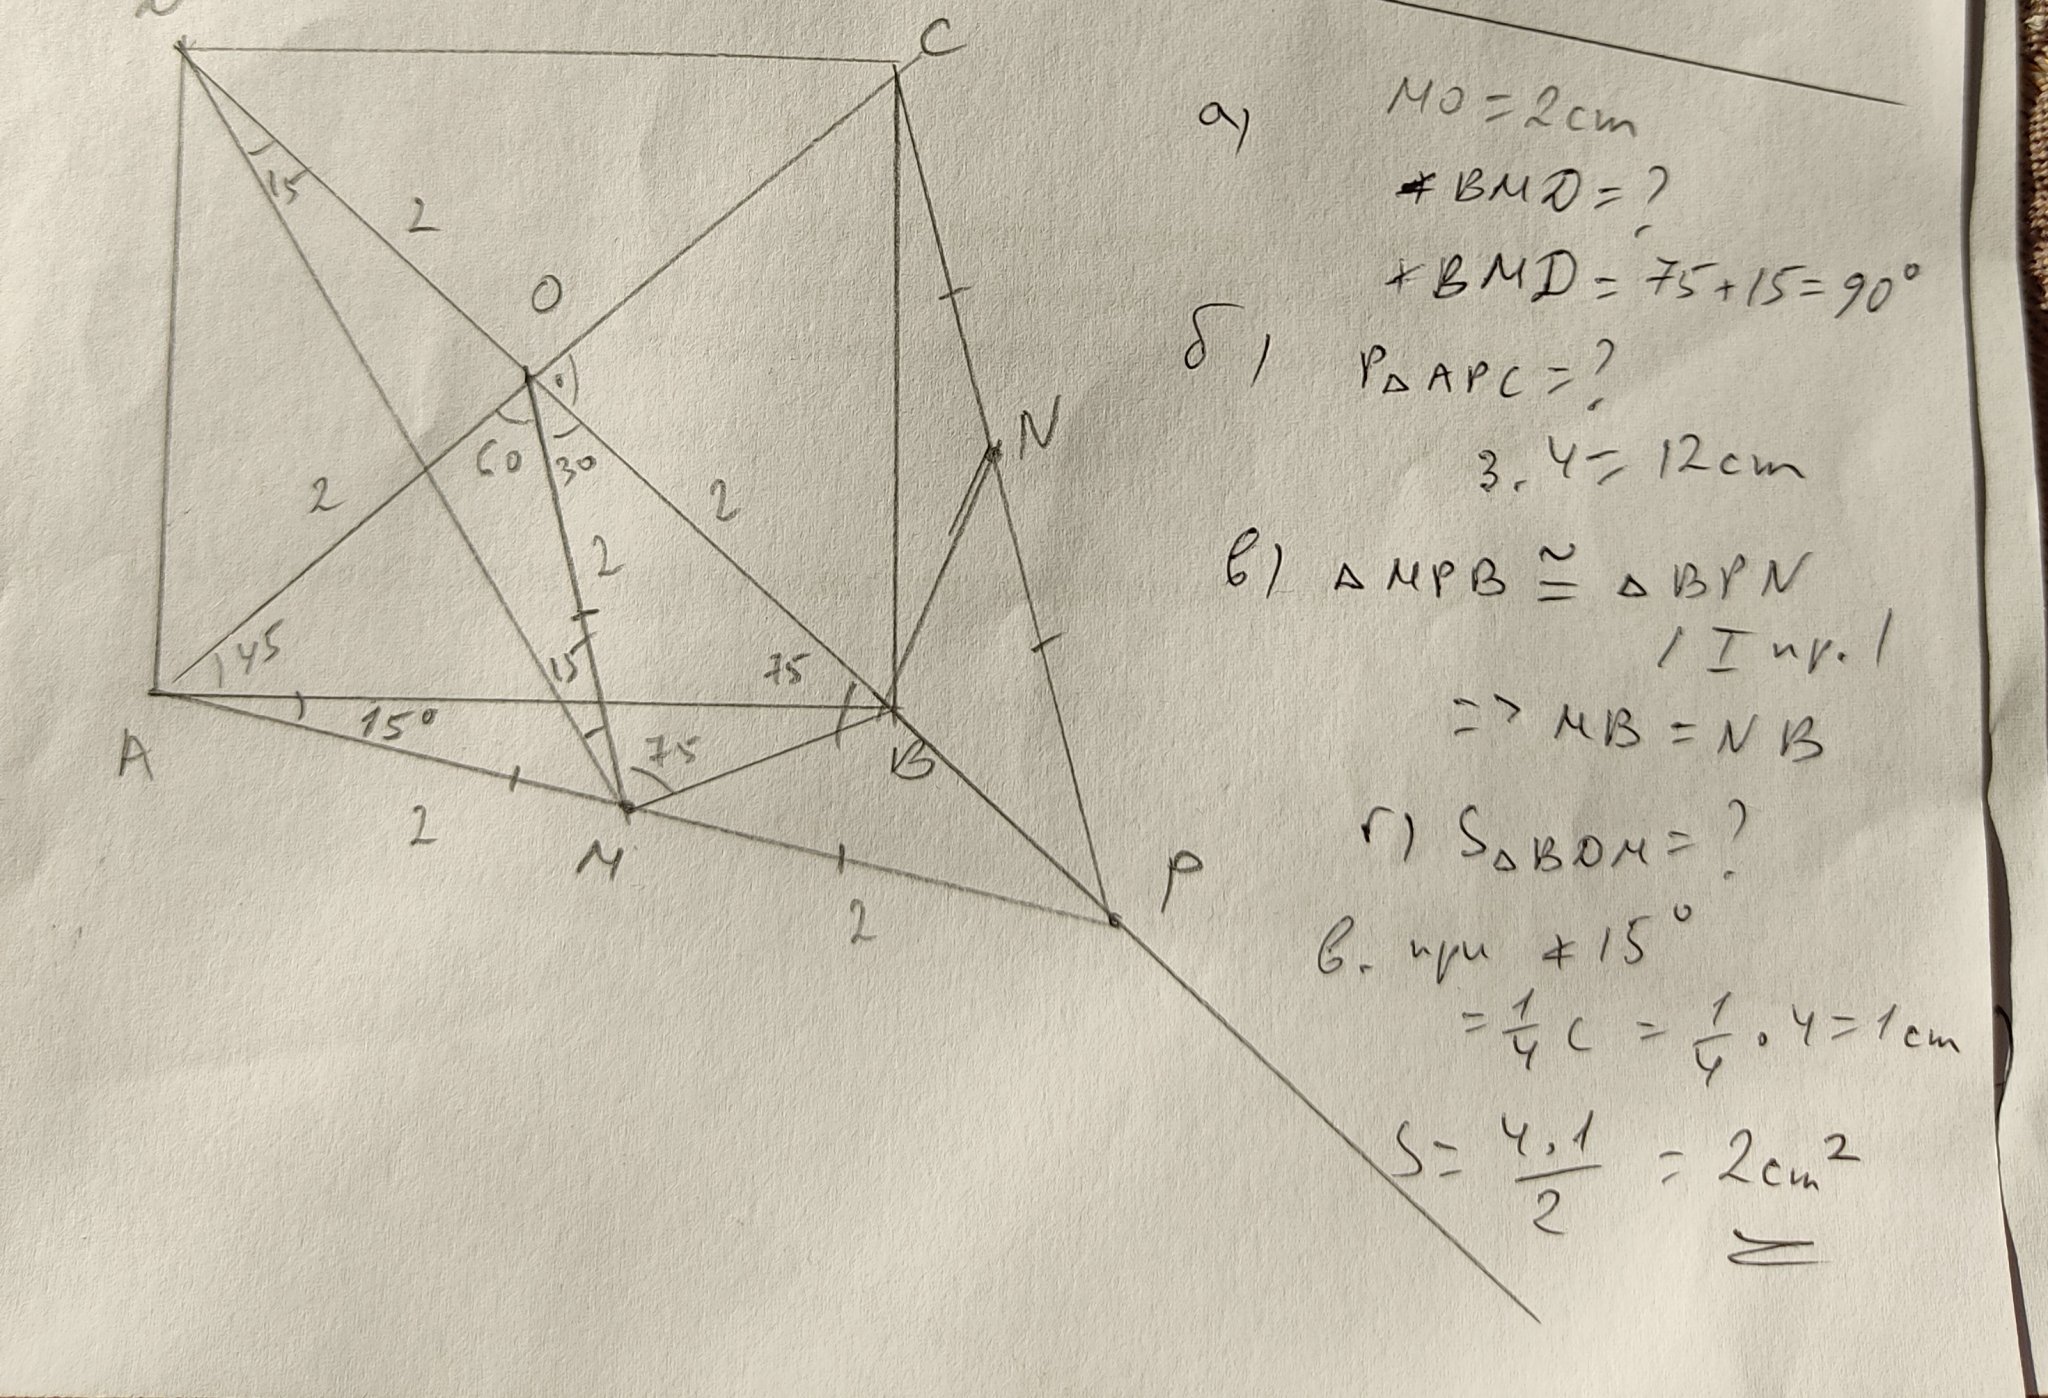 C
15
2
O
60
30
2
2
2
45
15
75
15°
75
A
B
2
M
2
P
N
а) MO = 2 cm
∢ BMD = ?
∢ BMD = 75 + 15 = 90°
б) P△APC = ?
3 . 4 = 12 cm
в) △ MPB ≅ △ BPN
/ I пр. /
=> MB = NB
г) S△BDM = ?
в. при ∢ 15°
= 1/4 c = 1/4 . 4 = 1 cm
S = 4.1/2 = 2 cm²